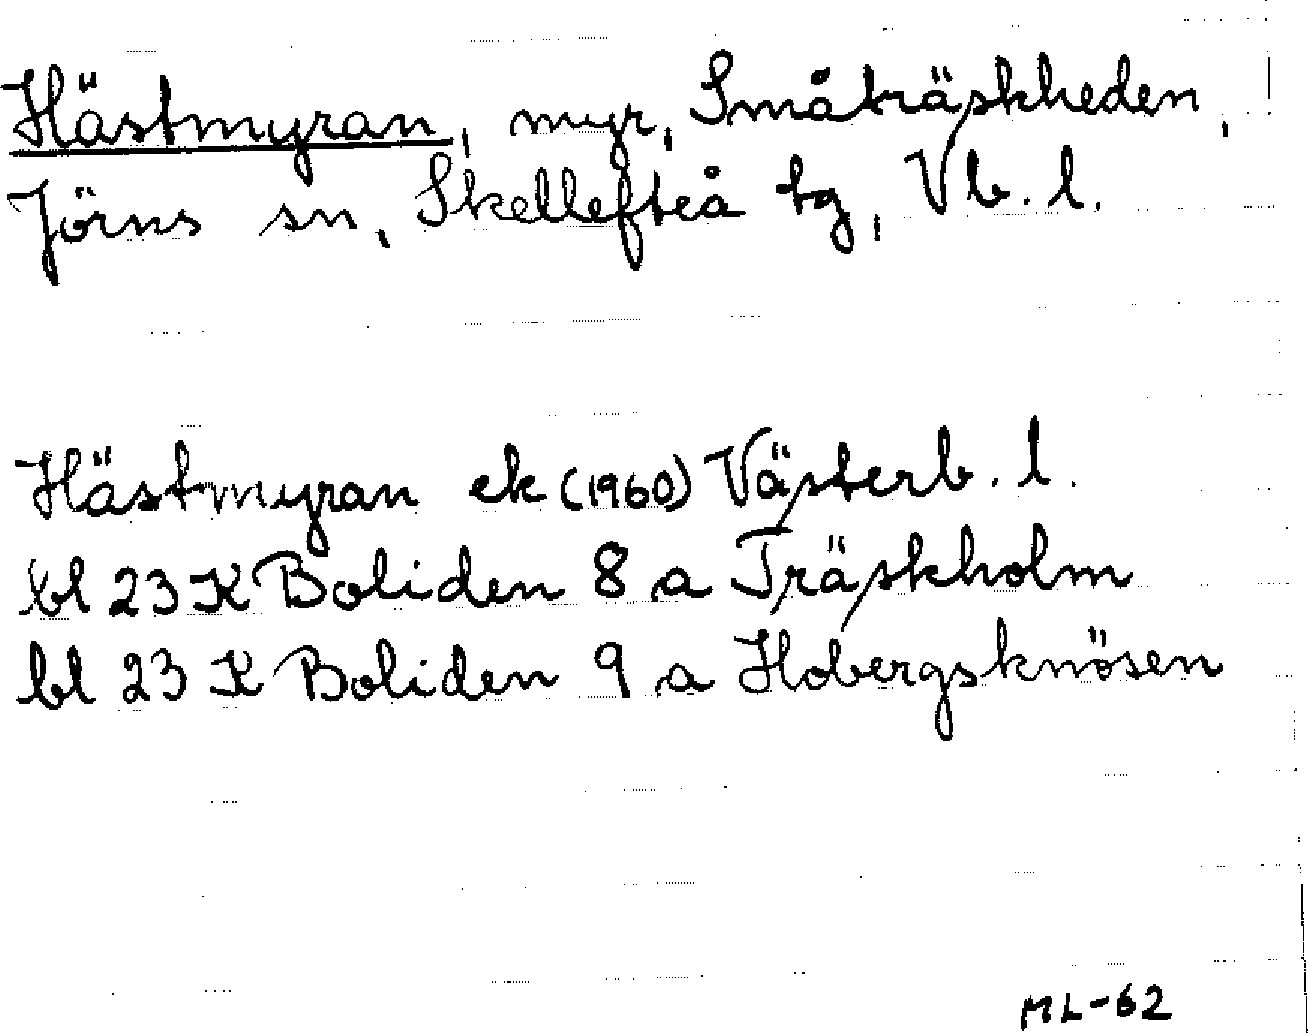 Hästmyran, myr, Småträskheden,
Jörns sn, Skellefteå tg, Vb. l.
Hästmyran ek (1960) Västerb. l.
bl 23 K Boliden 8 a Träskholm
bl 23 K Boliden 9 a Hobergsknösen
ML-62